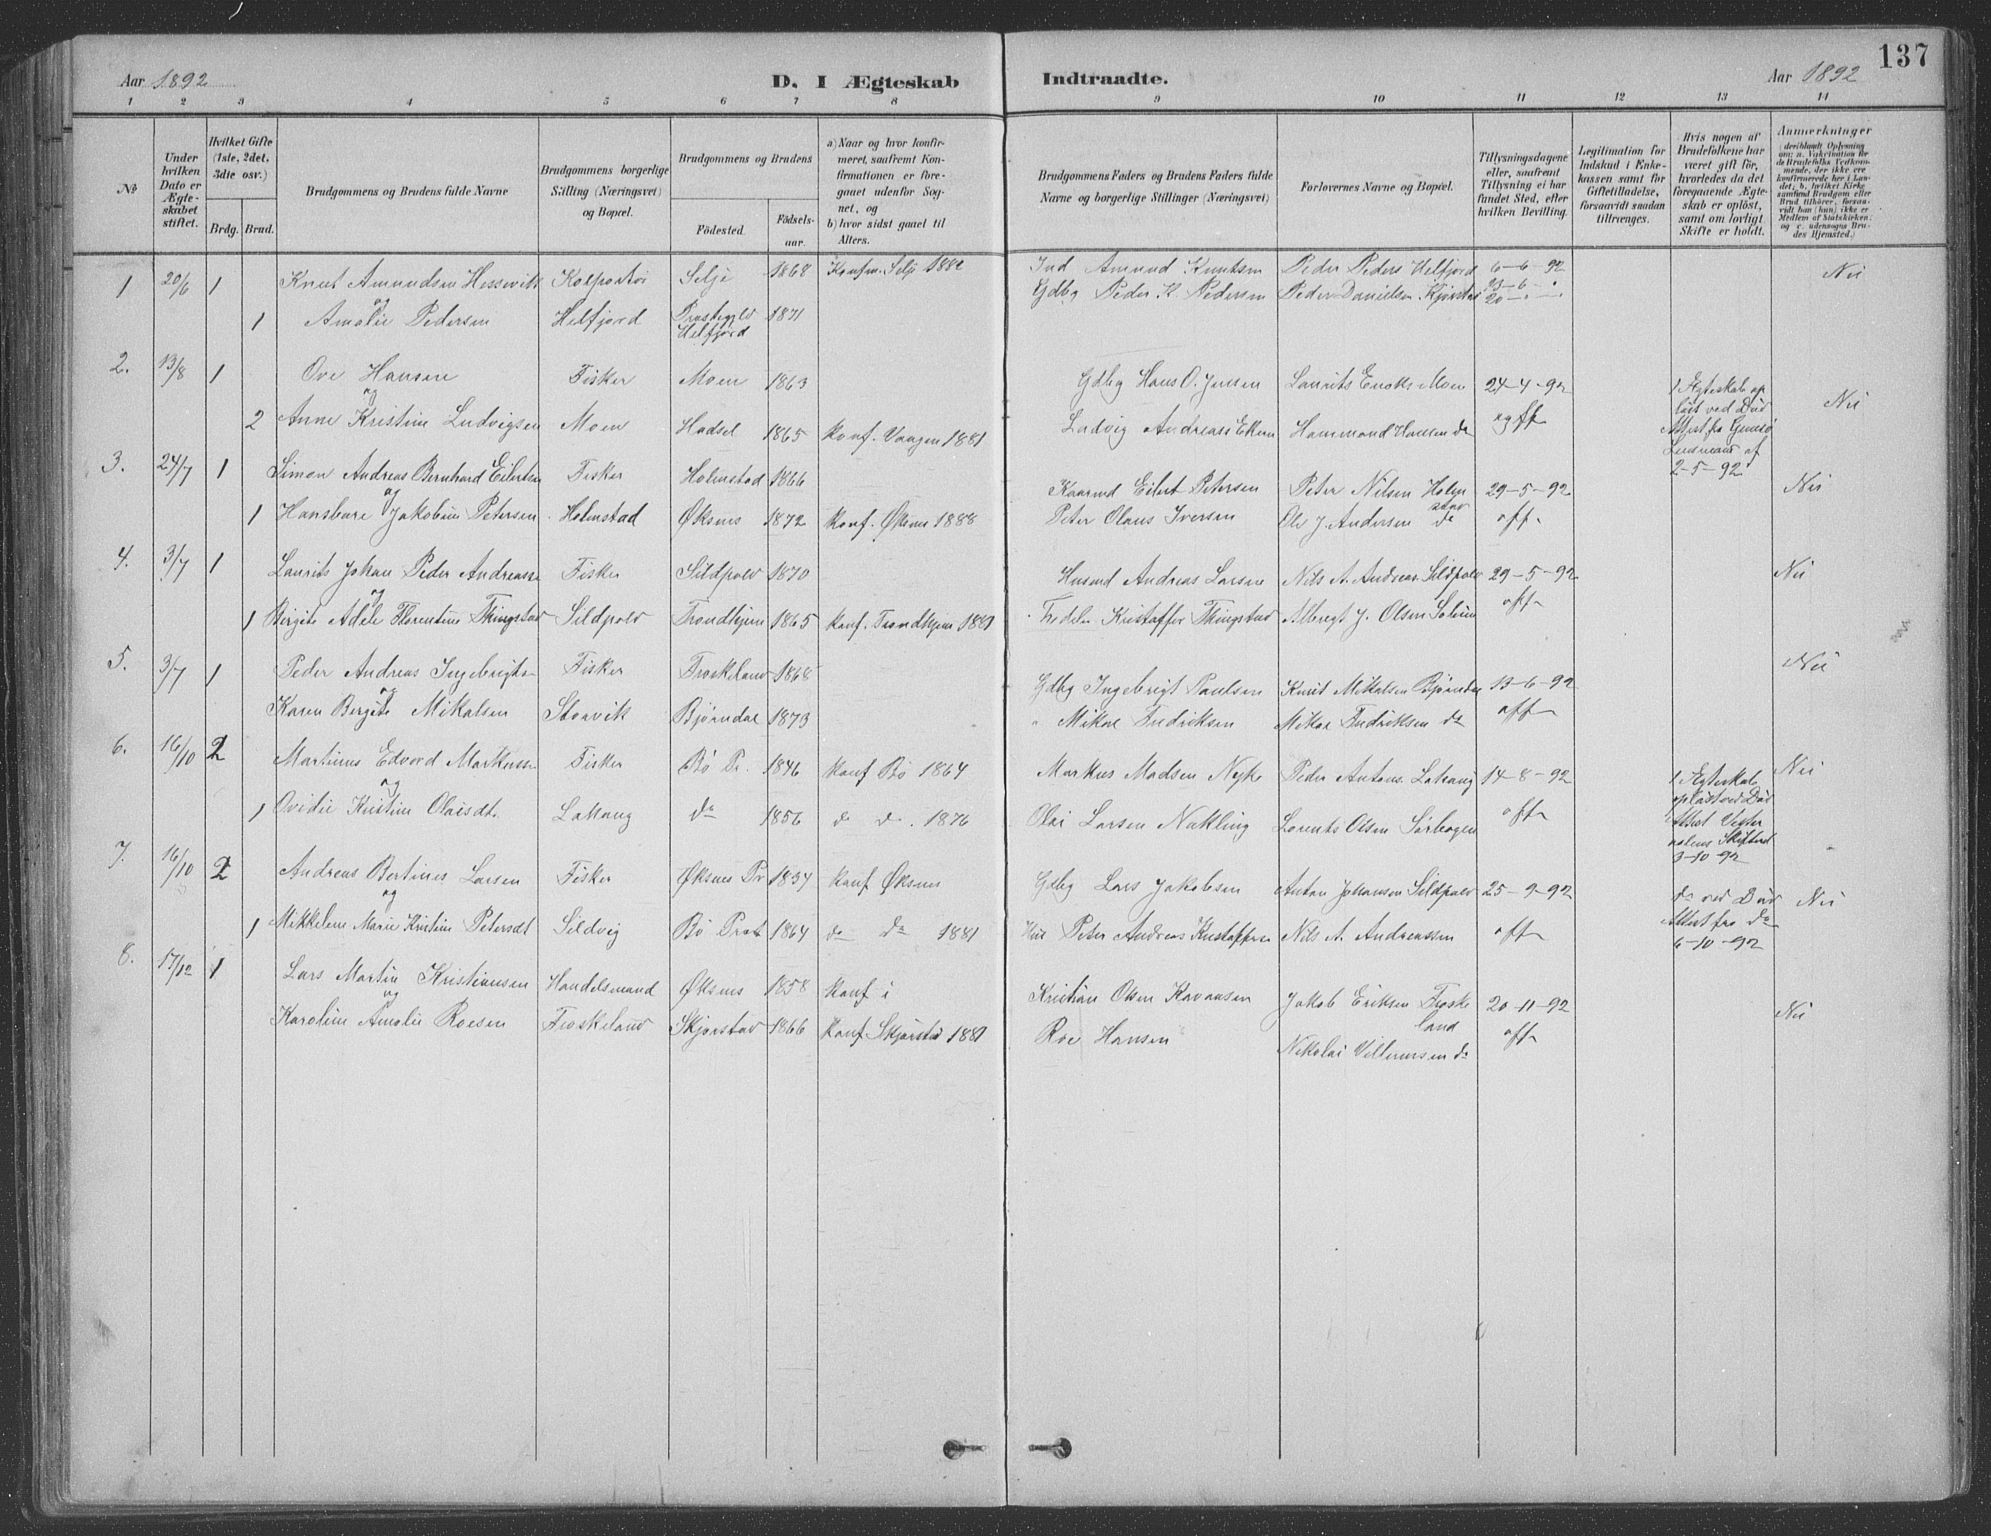 Aar 1892
D. I Ægteskab
Indtraadte.
Aar 1892
137
1 2 3 4 5 6 7 8 9 10 11 12 13 14
No
Under hvilken Dato er Ægteskabet stiftet.
Hvilket Gifte (1ste, 2det, 3die osv.)
Brdg. Brud.
Brudgommens og Brudens fulde Navne
Brudgommens borgerlige Stilling (Næringsvei) og Bopæl.
Brudgommens og Brudens
Fødested.
Fødselsaar.
a) Naar og hvor konfirmeret, saafremt Konfirmationen er foregaaet udenfor Sognet, og
b) hvor sidst gaaet til Alters.
Brudgommens Faders og Brudens Faders fulde Navne og borgerlige Stillinger (Næringsvei)
Forlovernes Navne og Bopæl.
Tillysningsdagene eller, saafremt Tillysning ei har fundet Sted, efter hvilken Bevilling.
Legitimation for Indskud i Enkekassen samt for Giftetilladelse, forsaavidt saadan tiltrænges.
Hvis nogen af Brudefolkene har været gift før, hvorledes da det foregaaende Ægteskab er opløst, samt om lovligt Skifte er holdt.
Anmerkninger (deriblandt Oplysning om: a. Vakcination for de Brudefolks Vedkommende, der ikke ere konfirmerede her i Landet; b. hvilket Kirkesamfund Brudgom eller Brud tilhører, forsaavidt han (hun) ikke er Medlem af Statskirken; og c. udensogns Brudes Hjemsted.)
1 20/6 1 Knut Amundsen Hessevik Kolportør Selje 1868 Konfm. Selje 1882 Ind Amund Knutsen Peder Peders Helfjord 6-6-92 Nei
og Gdbg Peder K. Pedersen Peder Danielsen 13-6-"
20-"-"
1 Amalie Pedersen Helfjord Prestegjeld Helfjord 1871
2. 13/8 1 Ove Hansen Fisker Moen 1863 Gdbg Hans O. Jensen Laurits Enoks. Moen 24-4-92 1 Ægteskab op
og løst ved Død Nei
2 Anne Kristine Ludvigsen Moen Hadsel 1865 konf. Vaagen 1881 Ludvig Andreas Hammond Hansen do og ff Attest fra
Lensmand af
2-5-92
3. 24/7 1 Simon Andreas Bernhard Eilertsen Fisker Holmstad 1866 Kaarmd Eilert Petersen Peter Nilsen Holmstad 29-5-92 Nei
og
1 Hansbare Jakobine Petersen Holmstad Øksnes 1872 konf. Øksnes 1888 Peter Olaus Iversen Ole J. Andersen do off
4. 3/7 1 Laurits Johan Peder Andreasse Fisker Sildpold 1870 Husmd Andreas Larsen Nils A. Andreas. Sildpold 29-5-92 Nei
og
1 Bergite Adele Florentine Thingstad Sildpold Trondhjem 1865 konf. Trondhjem 1881 Kristoffer Thingstad Albregt J. Olsen off
5. 3/7 1 Peder Andreas Ingebrigts. Fisker Froskeland 1868 Gdbg Ingebrigt Paulsen Knut Mikalsen Bjørndal 13-6-92 Nei
og
Karen Bergite Mikalsen Storvik Bjørndal 1873 " Mikal Fredriksen Mikal Fredriksen do off
6. 16/10 2 Martinus Edvard Markuss. Fisker Bø Pr. 1846 konf Bø 1864 Markus Madsen Nyke Peder Antons. Lahaug 14-8-92 1 Ægteskab Nei
og opløst ved Død
1 Ovidie Kristine Olaisdt. Lahaug do 1856 do do. 1876 Olai Larsen Nykling Lorents Olsen Sørhogen off Attest
3-10-92
7. 16/10 2 Andreas Bertines Larsen Fisker Øksnes Pr 1834 konf Øksnes Gdbg Lars Jakobsen Anton Johansen Sildpold 25-9-92 do ved Død Nei
og
1 Mikkeline Marie Kristine Petersdt Sildvig Bø Prst 1864 do do 1881 Hus Peter Andreas Kristoffersen Nils A. Andreassen off Attest fra do
6-10-92
8. 17/12 1 Lars Martin Kristiansen Handelsmand Øksnes 1858 konf i Kristian Olsen Jakob Eriksen Froskeland 20-11-92
og
Karoline Amalie Roesen Froskeland Skjørstad 1866 konf. Skjørstad 1881 Roe Hansen Nikolai Villumsen do off Nei